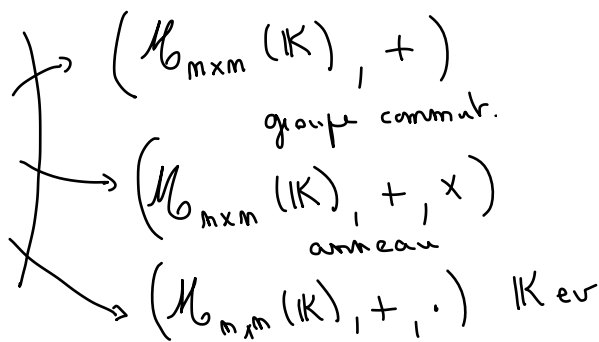 (ℳ_{n×n} (𝕂), +)
groupe commut.
(ℳ_{n×n} (𝕂), +, ×)
anneau
(ℳ_{n×n} (𝕂), +, ·) 𝕂 ev